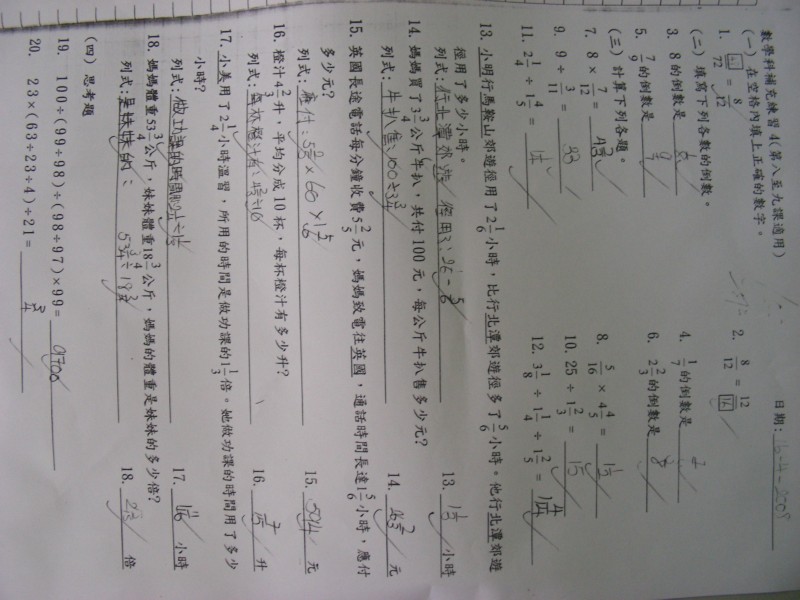 數學科補充練習4(第八至九課適用)
日期: 16-4-2008
(一) 在空格內填上正確的數字。
1. □/72 = 8/12
2. 8/12 = 12/□
(二) 填寫下列各數的倒數。
3. 8的倒數是
4. 1/7的倒數是 7
5. 7/9的倒數是 9/7
6. 2 2/3的倒數是 3/8
(三) 計算下列各題。
7. 8 × 7/12 = 4 2/3
8. 5/16 × 4 4/5 = 1 1/2
9. 9 ÷ 3/11 = 33
10. 25 ÷ 1 2/3 = 15
11. 2 1/4 ÷ 1 4/5 = 1 1/4
12. 3 1/8 ÷ 1 1/4 ÷ 1 2/5 =
13. 小明行馬鞍山郊遊徑用了2 1/6小時,比行北潭郊遊徑多了5/6小時。他行北潭郊遊
徑用了多少小時。
列式: 行北潭郊遊徑用了: 2 1/6 - 5/6
13. 1 1/3 小時
14. 媽媽買了3 3/4公斤牛扒,共付100元,每公斤牛扒售多少元?
列式: 牛扒售: 100÷3 3/4
14. 26 2/3 元
15. 英國長途電話每分鐘收費5 2/5元,媽媽致電往英國,通話時間長達1 5/6小時,應付
多少元?
列式: 應付: 5 2/5 × 60 × 1 5/6
15. 594 元
16. 橙汁4 2/3升,平均分成10杯,每杯橙汁有多少升?
列式: 每杯橙汁有: 4 2/3 ÷ 10
16. 7/15 升
17. 小美用了2 1/4小時溫習,所用的時間是做功課的1 1/3倍。她做功課的時間用了多少
小時?
列式: 做功課的時間
17. 1 11/16 小時
18. 媽媽體重53 3/4公斤,妹妹體重18 3/4公斤,媽媽的體重是妹妹的多少倍?
列式: 是妹妹的: 53 3/4 ÷ 18 3/4
18. 倍
(四) 思考題
19. 100÷(99÷98)÷(98÷97)×99= 9700
20. 23×(63÷23÷4)÷21= 3/4